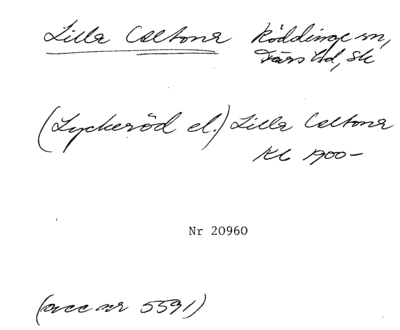 Lilla Caltona Röddinge sn,
Färs hd, Sk
(Lyckeröd el.) Lilla Caltona
Kl 1900-
Nr 20960
(acc nr 5591)